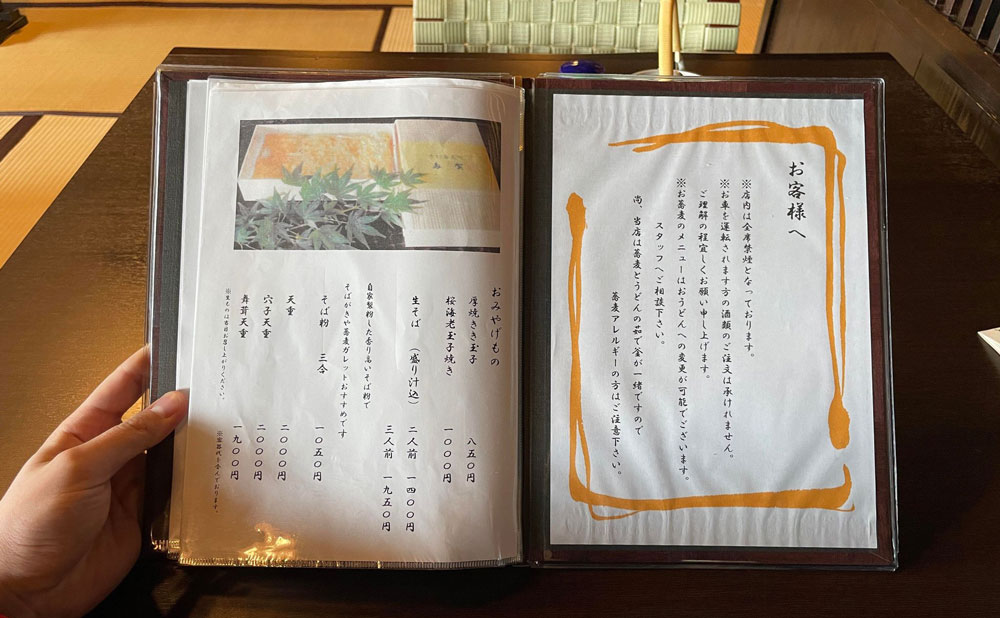 お客様へ
※店内は全席禁煙となっております。
※お車を運転されます方の酒類のご注文は承けれません。
ご理解の程宜しくお願い申し上げます。
※お蕎麦のメニューはおうどんへの変更が可能でございます。
スタッフへご相談下さい。
尚、当店は蕎麦とうどんの茹で釜が一緒ですので
蕎麦アレルギーの方はご注意下さい。
おみやげもの
厚焼きき玉子 八五〇円
桜海老玉子焼き 一〇〇〇円
生そば (盛り汁込) 二人前 一四〇〇円
三人前 一九五〇円
自家製粉した香り高いそば粉で
そばがきや蕎麦ガレットおすすめです
そば粉 三合 一〇五〇円
天重 二〇〇〇円
穴子天重 二〇〇〇円
舞茸天重 一九〇〇円
※生ものは当日お召し上がりください。
※容器代も含んでおります。